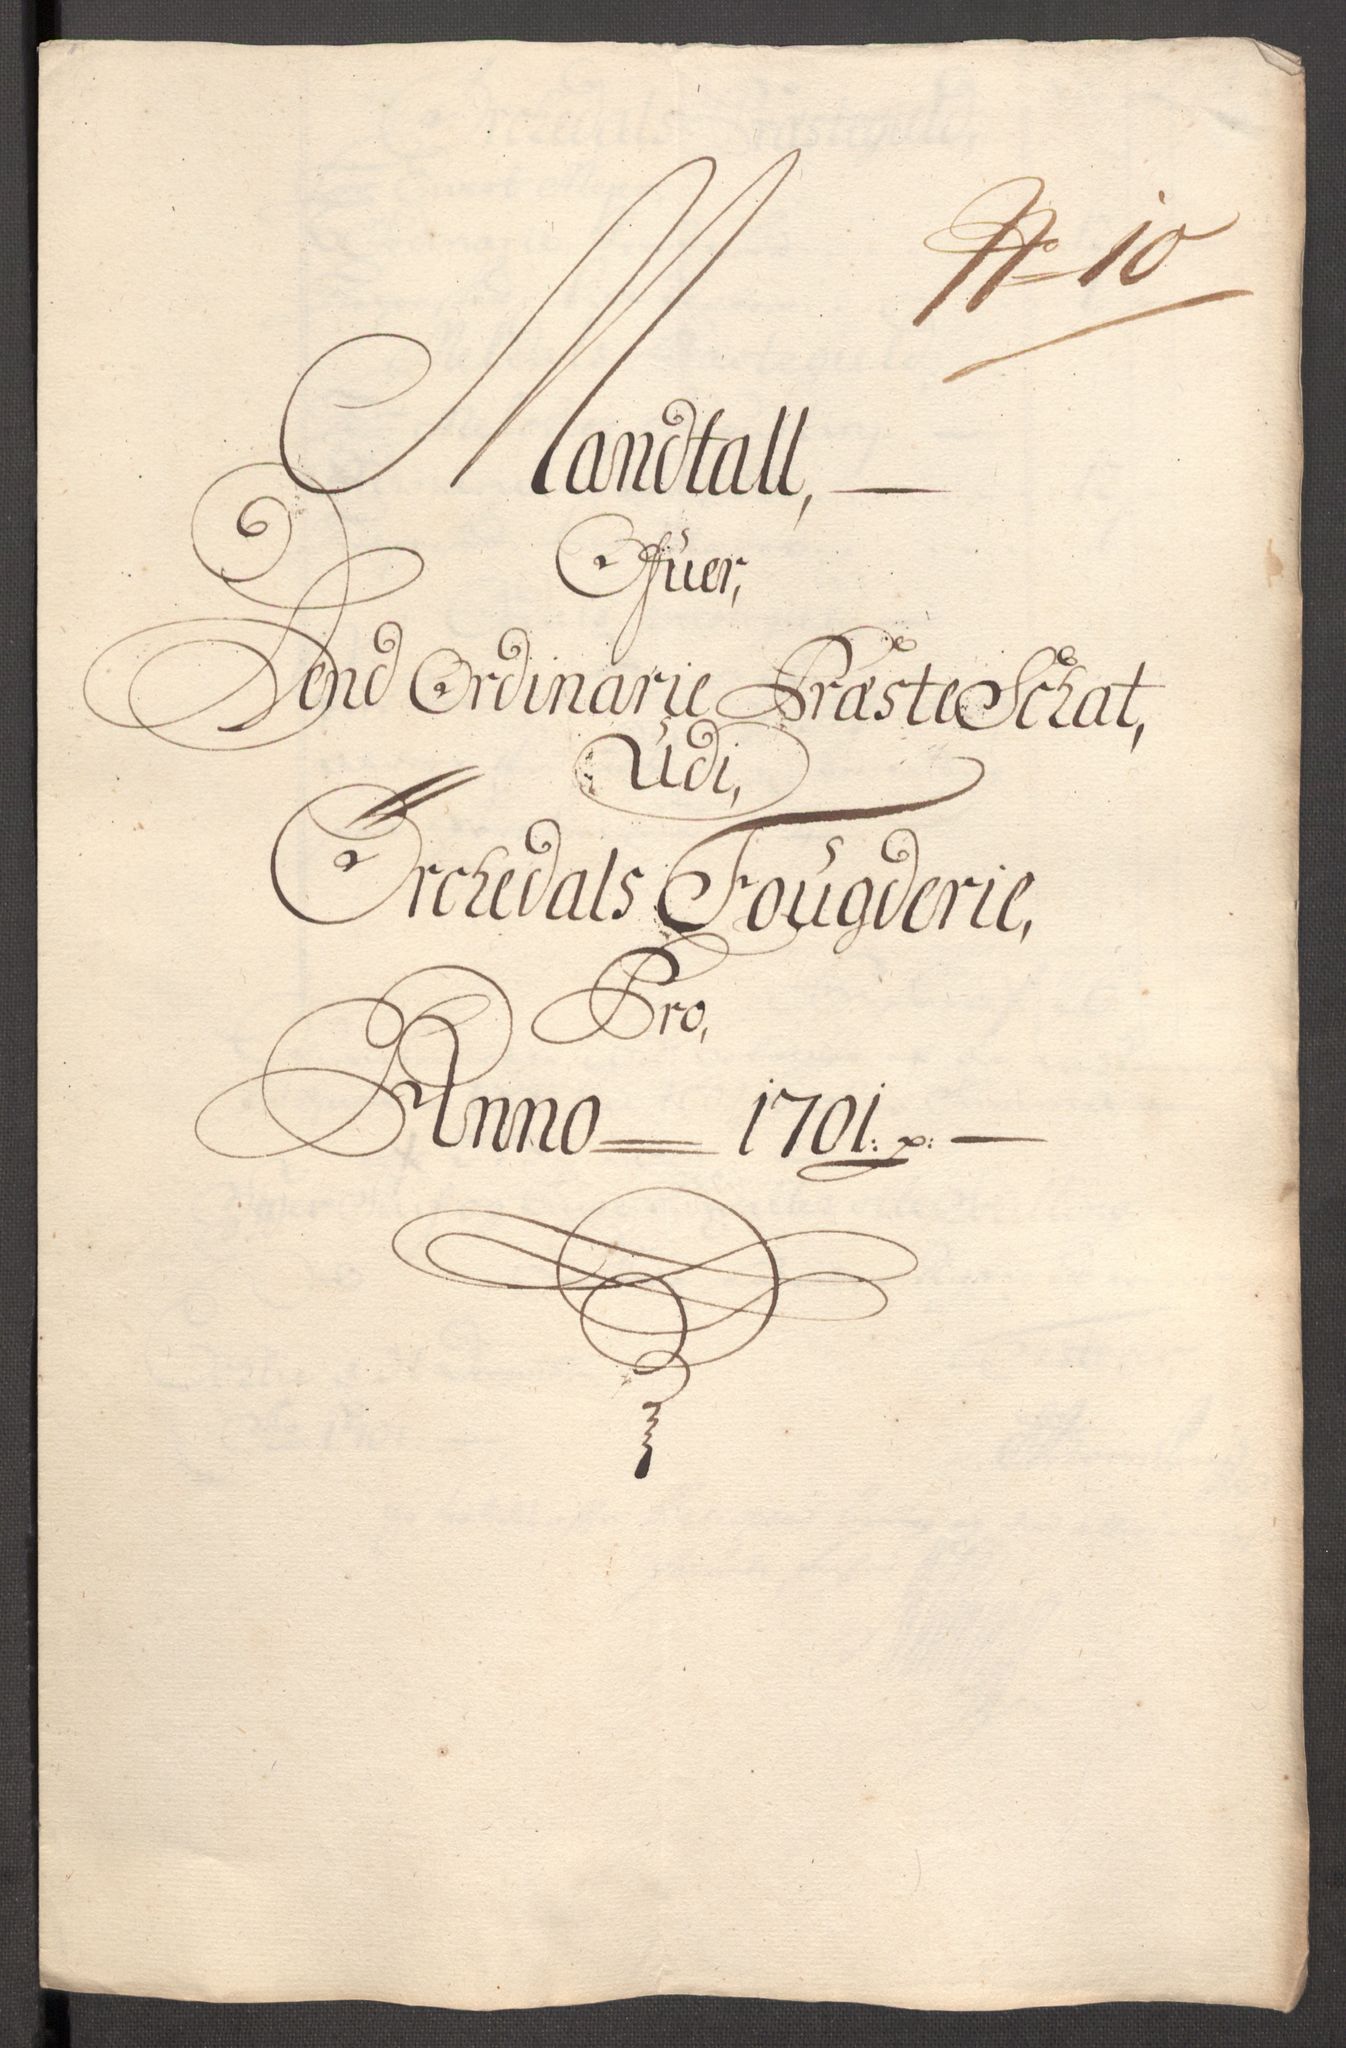 No 10
Mandtall,
Ofuer,
Dend Ordinarie Præste Schat,
Udi,
Orchedals Fougderie,
Pro,
Anno 1701.